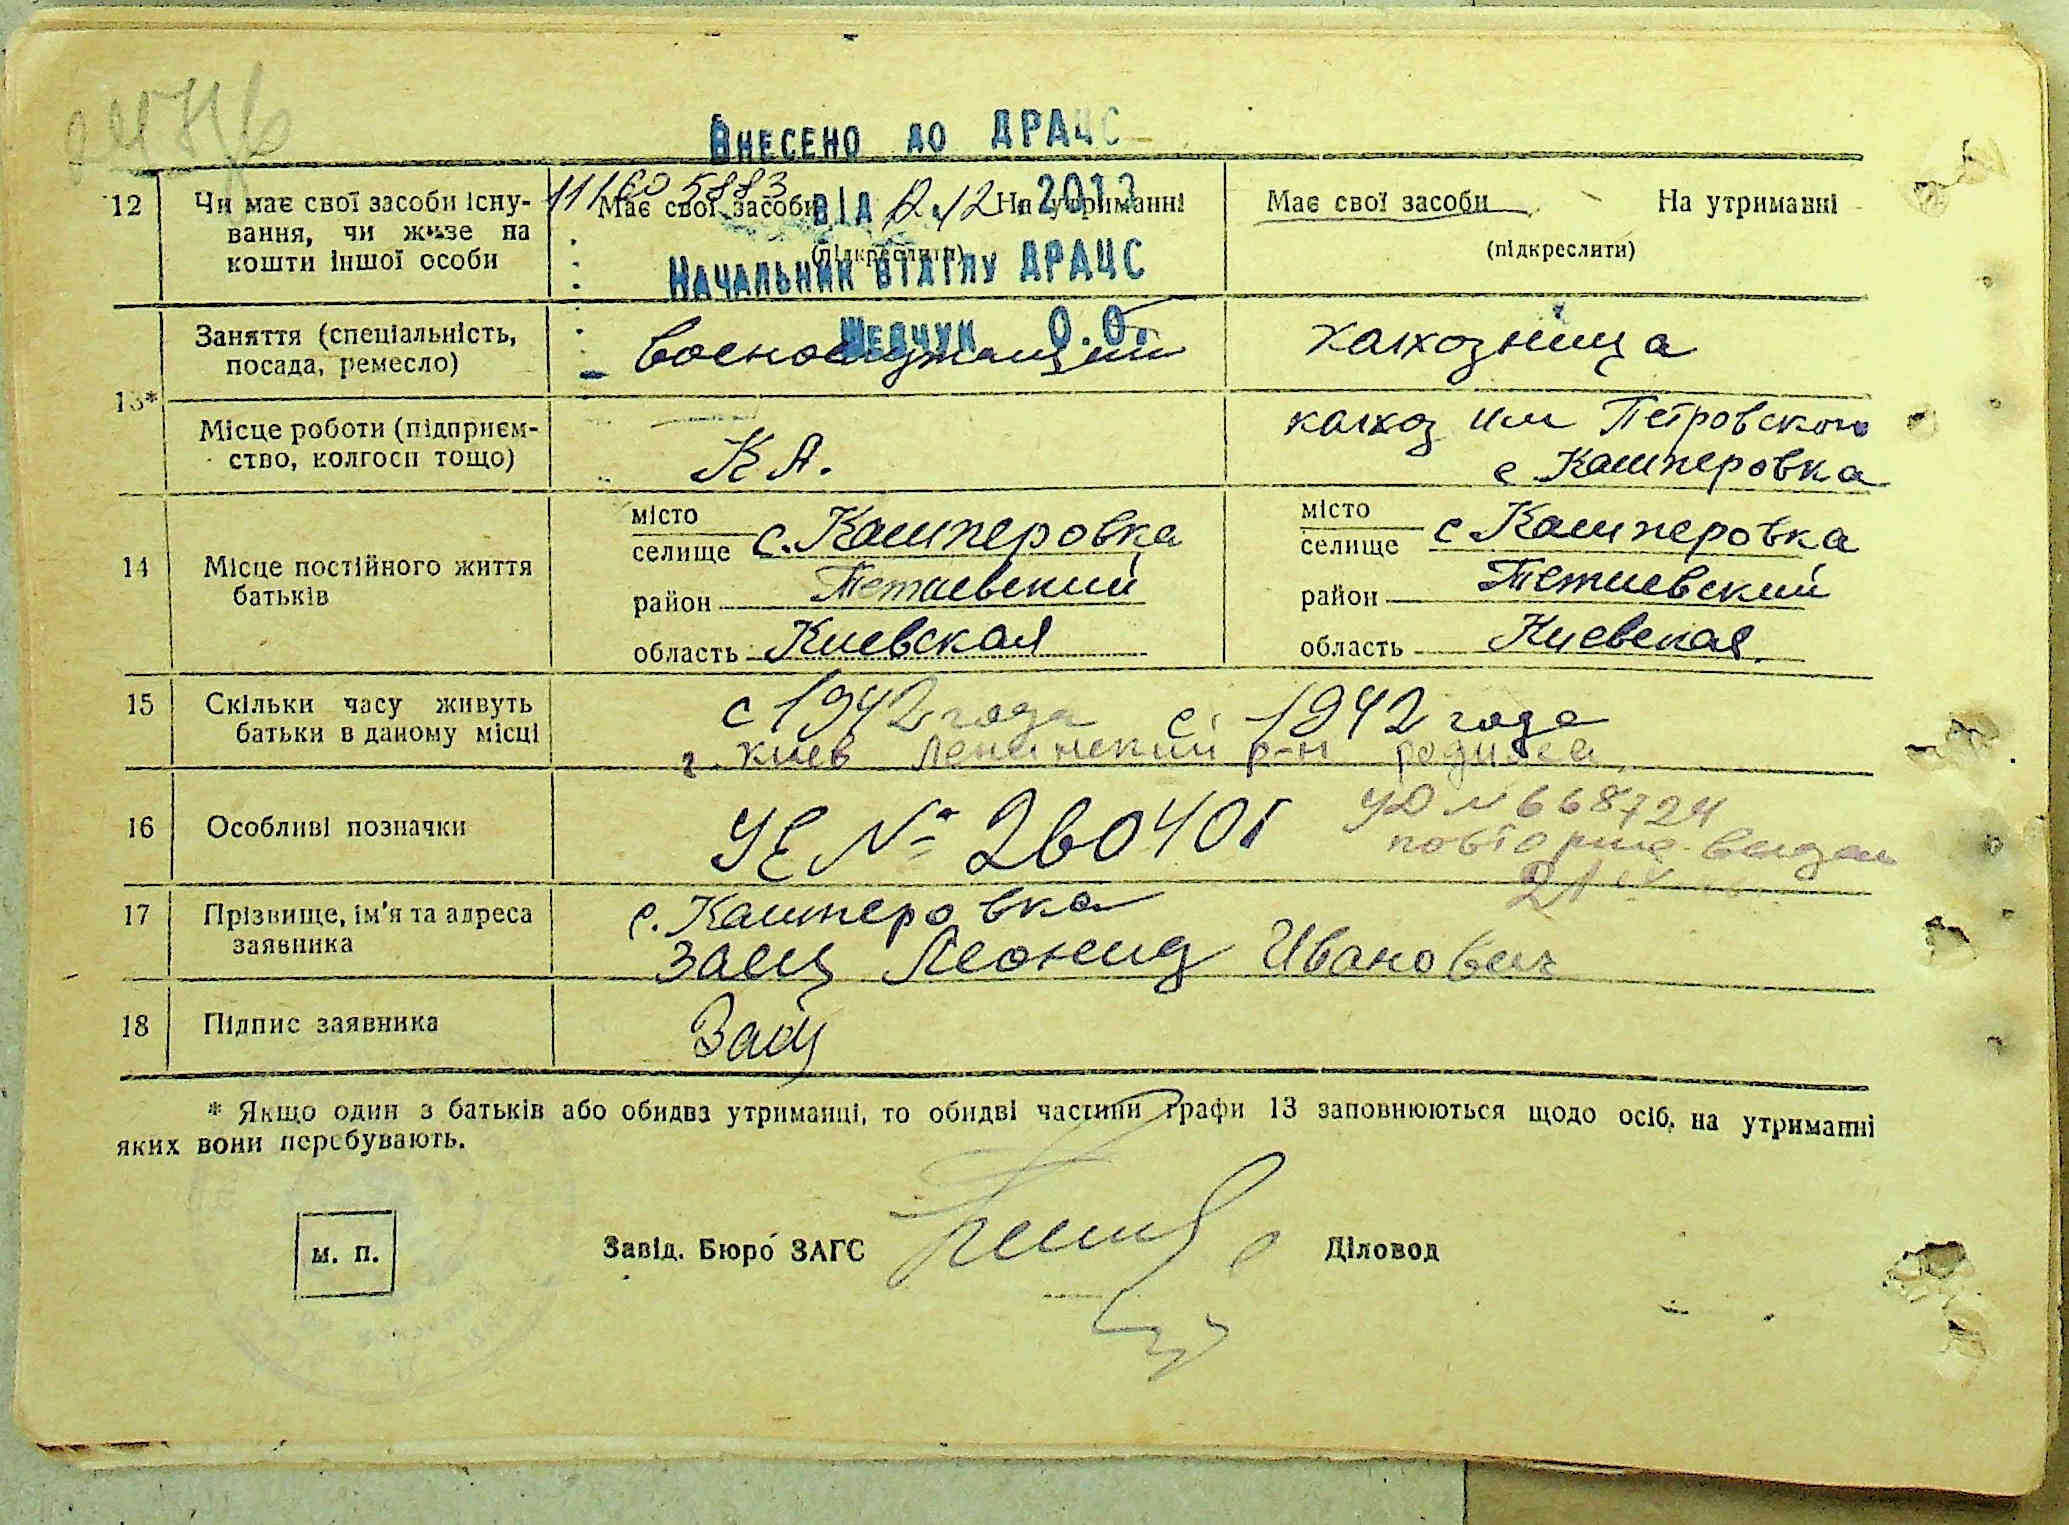 Внесено до ДРАЦС
12 Чи має свої засоби існу-
вання, чи живе на
кошти іншої особи
Має свої засоби На утриманні
(підкреслити)
від 12.12.2013
Начальник відділу ДРАЦС
О.О.
Має свої засоби На утриманні
(підкреслити)
13* Заняття (спеціальність,
посада, ремесло)
военнослужащий
колхозница
Місце роботи (підприєм-
ство, колгосп тощо)
К А.
колхоз им Петровского
с Кашперовка
14 Місце постійного життя
батьків
місто
селище с. Кашперовка
район Тетиевский
область Киевская
місто
селище с Кашперовка
район Тетиевский
область Киевская
15 Скільки часу живуть
батьки в даному місці
с 1942 года с 1942 года
г. Киев Ленинский р-н родился
16 Особливі позначки
УЕ № 260401
УД № 668724
повторне
21
17 Прізвище, ім'я та адреса
заявника
с. Кашперовка
Заец Леонид Иванович
18 Підпис заявника
Заец
* Якщо один з батьків або обидва утриманці, то обидві частини графи 13 заповнюються щодо осіб, на утриманні
яких вони перебувають.
м. п.
Завід. Бюро ЗАГС
Діловод